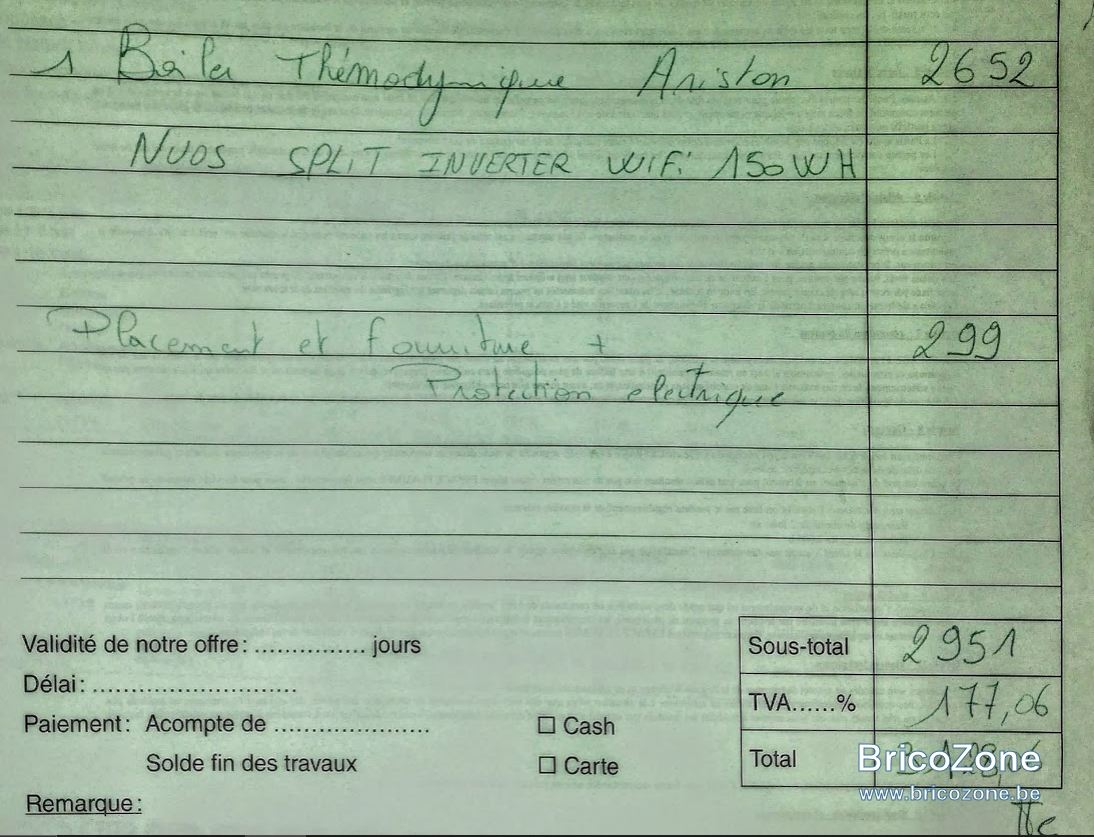 1 Boiler Thémodymique Ariston 2652
NUOS SPLIT INVERTER WIFI 150WH
Placement et fourniture + 299
Protection electrique
Validité de notre offre: ............... jours
Délai: ...........................
Paiement: Acompte de .....................
Solde fin des travaux
☐ Cash
☐ Carte
Remarque:
Sous-total 2951
TVA......% 177,06
Total 3128,06
BricoZone
www.bricozone.be